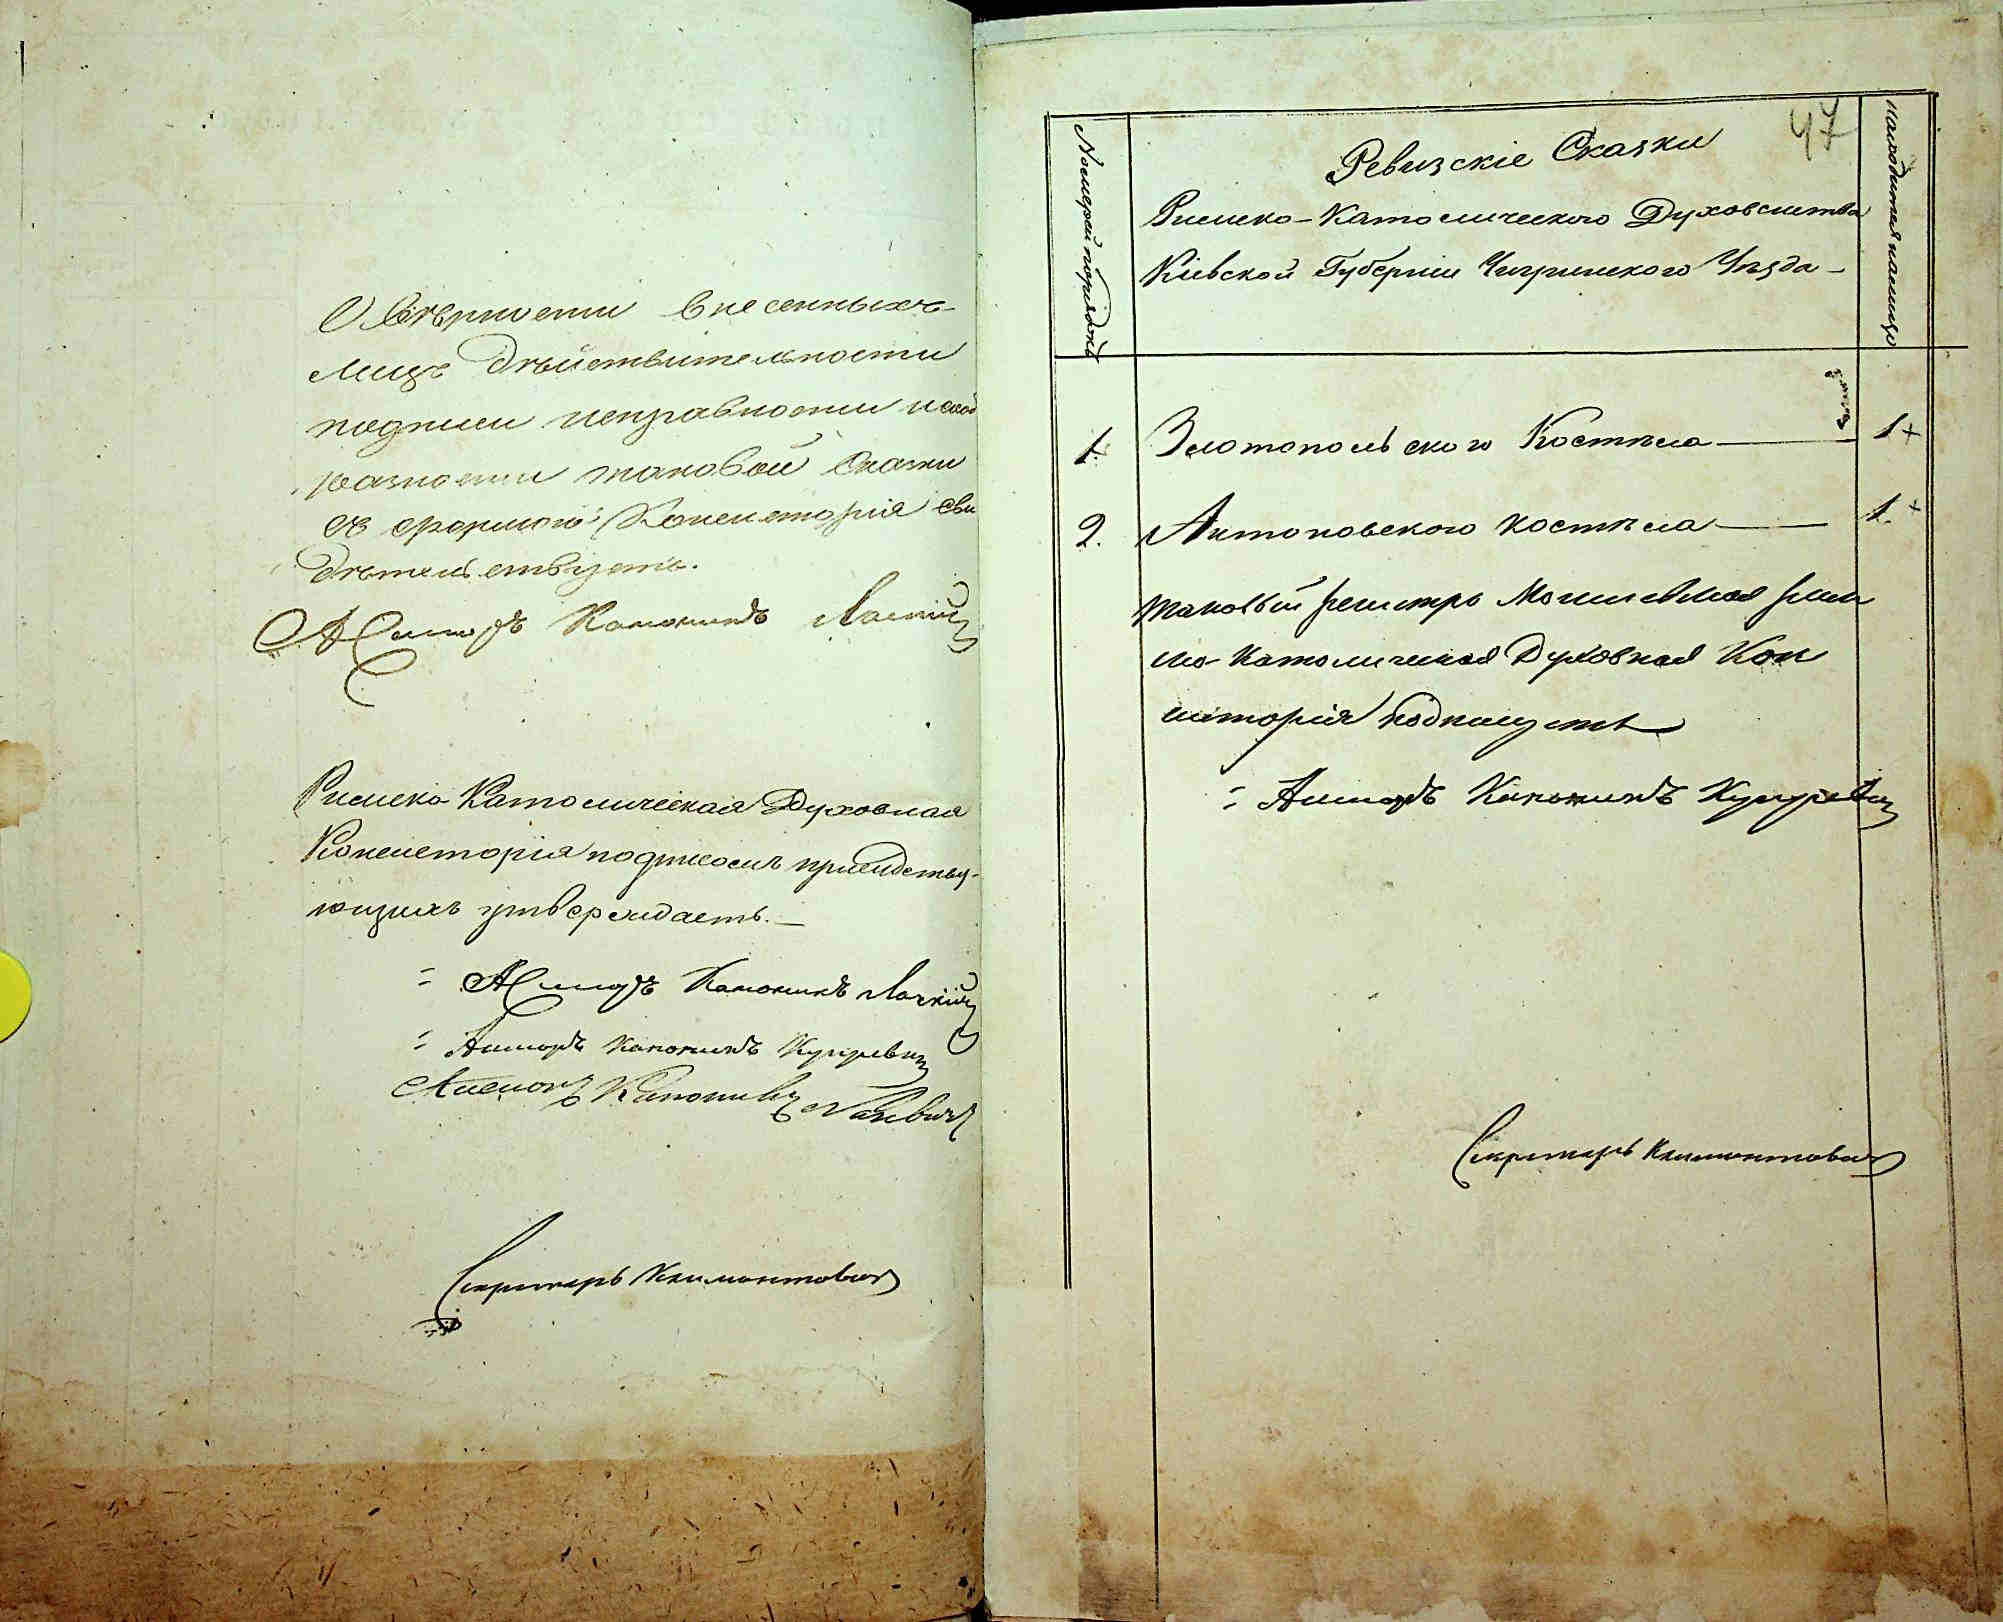 О вѣрности внесенныхъ
лицъ дѣйствительности
подписи исправности и сооб
разности таковой Сказки
съ формою Консисторія сви
дѣтельствуетъ.
Асессоръ Каноникъ
Римско Католическая Духовная
Консисторія подписомъ присудству-
ющихъ утверждаетъ.
Асессоръ Каноникъ
Асессоръ Каноникъ
Асессоръ Каноникъ
Секретарь Климонтовичъ
47
Номерой порядокъ
Ревизскіе Сказки
Римско-Католическаго Духовенства
Кіевской Губерніи Чигринскаго Уѣзда
находится на лицо
1. Златопольскаго Костѣла 1
2. Антоновскаго костѣла 1.
таковый регистръ Могилевская рим
ско-Католическая Духовная Кон
систорія подписуетъ
Асессоръ Каноникъ
Секретарь Климонтовичъ